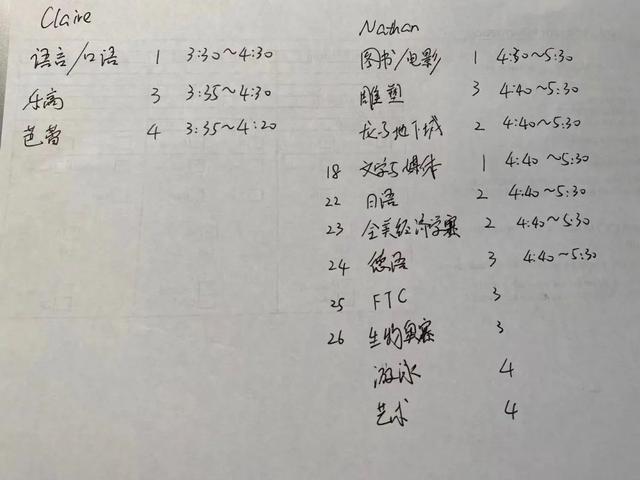 Claire
语言/口语 1 3:30~4:30
乐高 3 3:35~4:30
芭蕾 4 3:35~4:20
Nathan
图书/电影 1 4:30~5:30
雕塑 3 4:40~5:30
龙与地下城 2 4:40~5:30
18 文字与媒体 1 4:40~5:30
22 日语 2 4:40~5:30
23 全美经济学赛 2 4:40~5:30
24 德语 3 4:40~5:30
25 FTC 3
26 生物奥赛 3
游泳 4
艺术 4